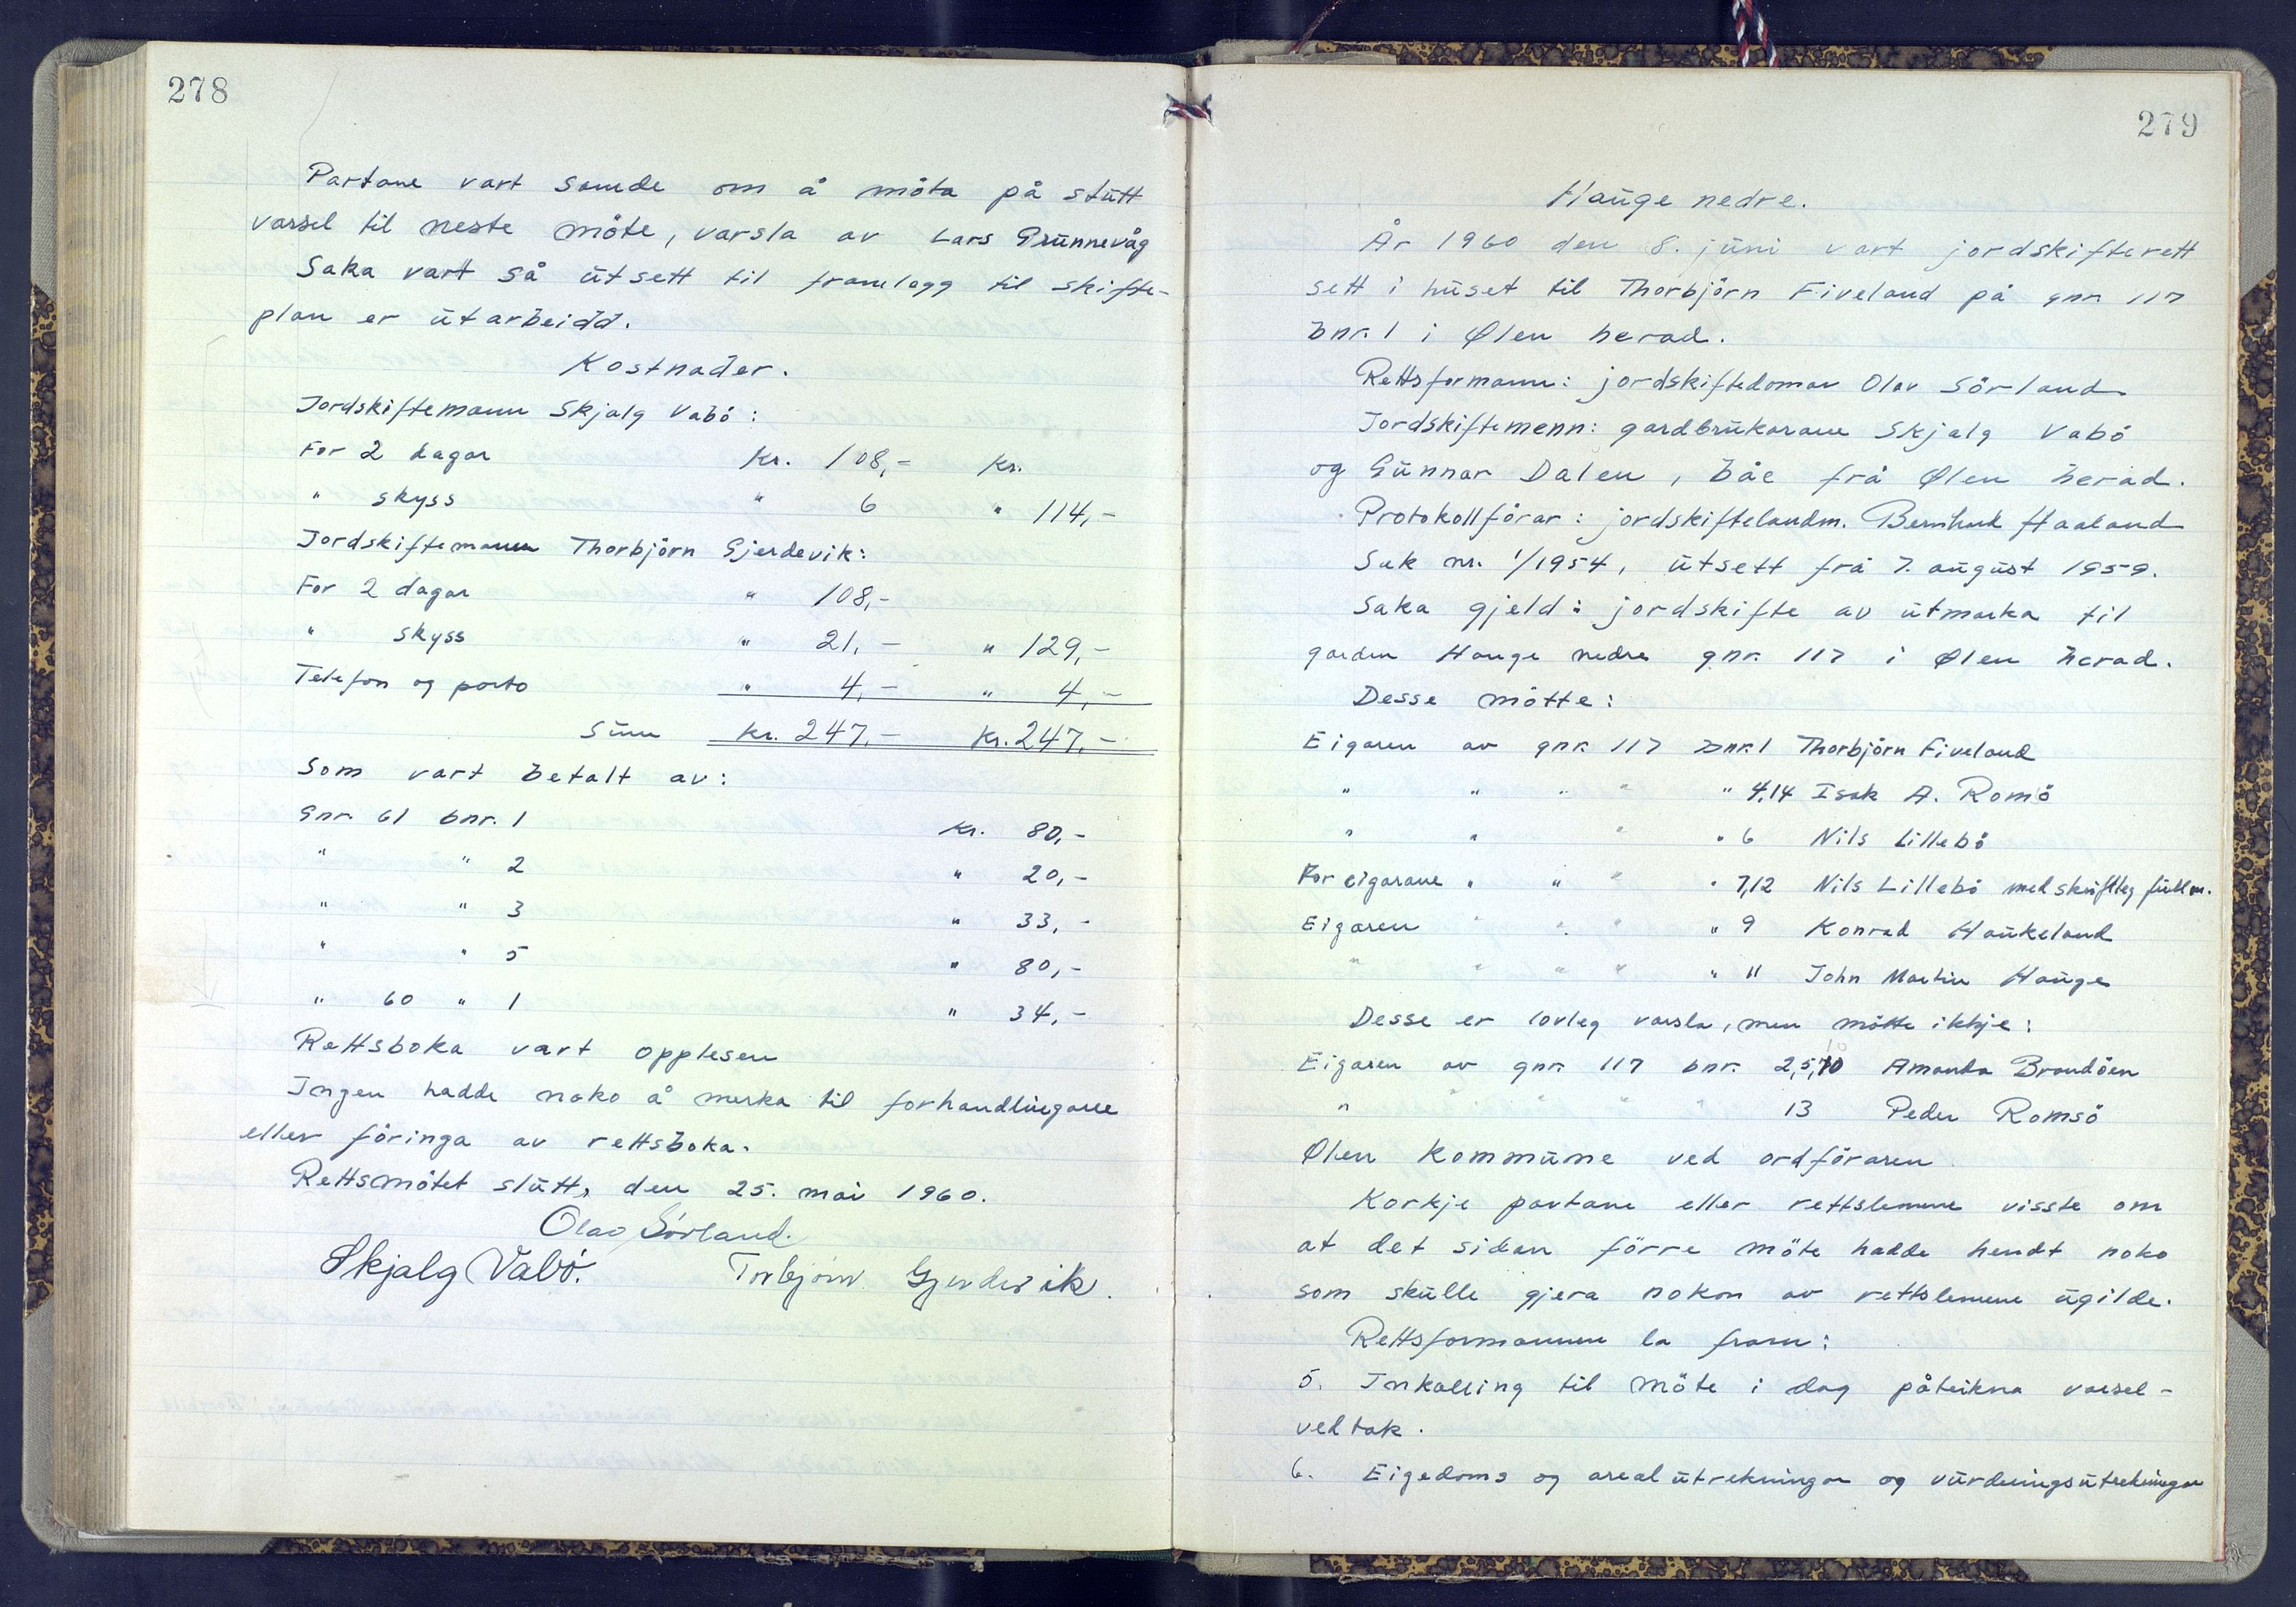 278
Partane vart samde om å møta på stutt
varsel til neste møte, varsla av Lars Grunnevåg
Saka vart så utsett til framlegg til skifte-
plan er utarbeidd.
Kostnader.
Jordskiftemann Skjalg Vabø:
For 2 dagar Kr. 108,- Kr.
" skyss " 6 " 114,-
Jordskiftemann Thorbjørn Gjerdevik:
For 2 dagar " 108,-
" skyss " 21,- " 129,-
Telefon og porto " 4,- " 4,-
Sum kr. 247,- Kr. 247,-
Som vart betalt av:
Gnr. 61 bnr. 1 Kr. 80,-
" " 2 " 20,-
" " 3 " 33,-
" " 5 " 80,-
" 60 " 1 " 34,-
Rettsboka vart opplesen
Ingen hadde noko å merka til forhandlingane
eller føringa av rettsboka.
Rettsmøtet slutt, den 25. mai 1960.
Olav Sørland.
Skjalg Vabø. Torbjørn Gjerdevik.
279
Hauge nedre.
År 1960 den 8. juni vart jordskifterett
sett i huset til Thorbjørn Fiveland på gnr. 117
bnr. 1 i Ølen herad.
Rettsformann: jordskiftedomar Olav Sørland
Jordskiftemenn: gardbrukarane Skjalg Vabø
og Gunnar Dalen, båe frå Ølen herad.
Protokollførar: jordskiftelandm. Bernhard Haaland
Sak nr. 1/1954, utsett frå 7. august 1959.
Saka gjeld: jordskifte av utmarka til
garden Hauge nedre gnr. 117 i Ølen herad.
Desse møtte:
Eigaren av gnr. 117 bnr. 1 Thorbjørn Fiveland
" " " " " 4,14 Isak A. Romsö
" " " " 6 Nils Lillebø
For eigarane " " " " 7,12 Nils Lillebø med skriftleg fullm.
Eigaren " " " 9 Konrad Haukeland
" " " " " 11 John Martin Hauge
Desse er lovleg varsla, men møtte ikkje:
Eigaren av gnr. 117 bnr. 2,5,10 Amanda Brandøen
" " " " " 13 Peder Romsö
Ølen kommune ved ordføraren
Korkje partane eller rettslemene visste om
at det sidan førre møte hadde hendt noko
som skulle gjera nokon av rettslemene ugilde.
Rettsformannen la fram:
5. Innkalling til møte i dag påteikna varsel-
vedtak.
6. Eigedoms og arealutrekningar og vurderingsutrekningar